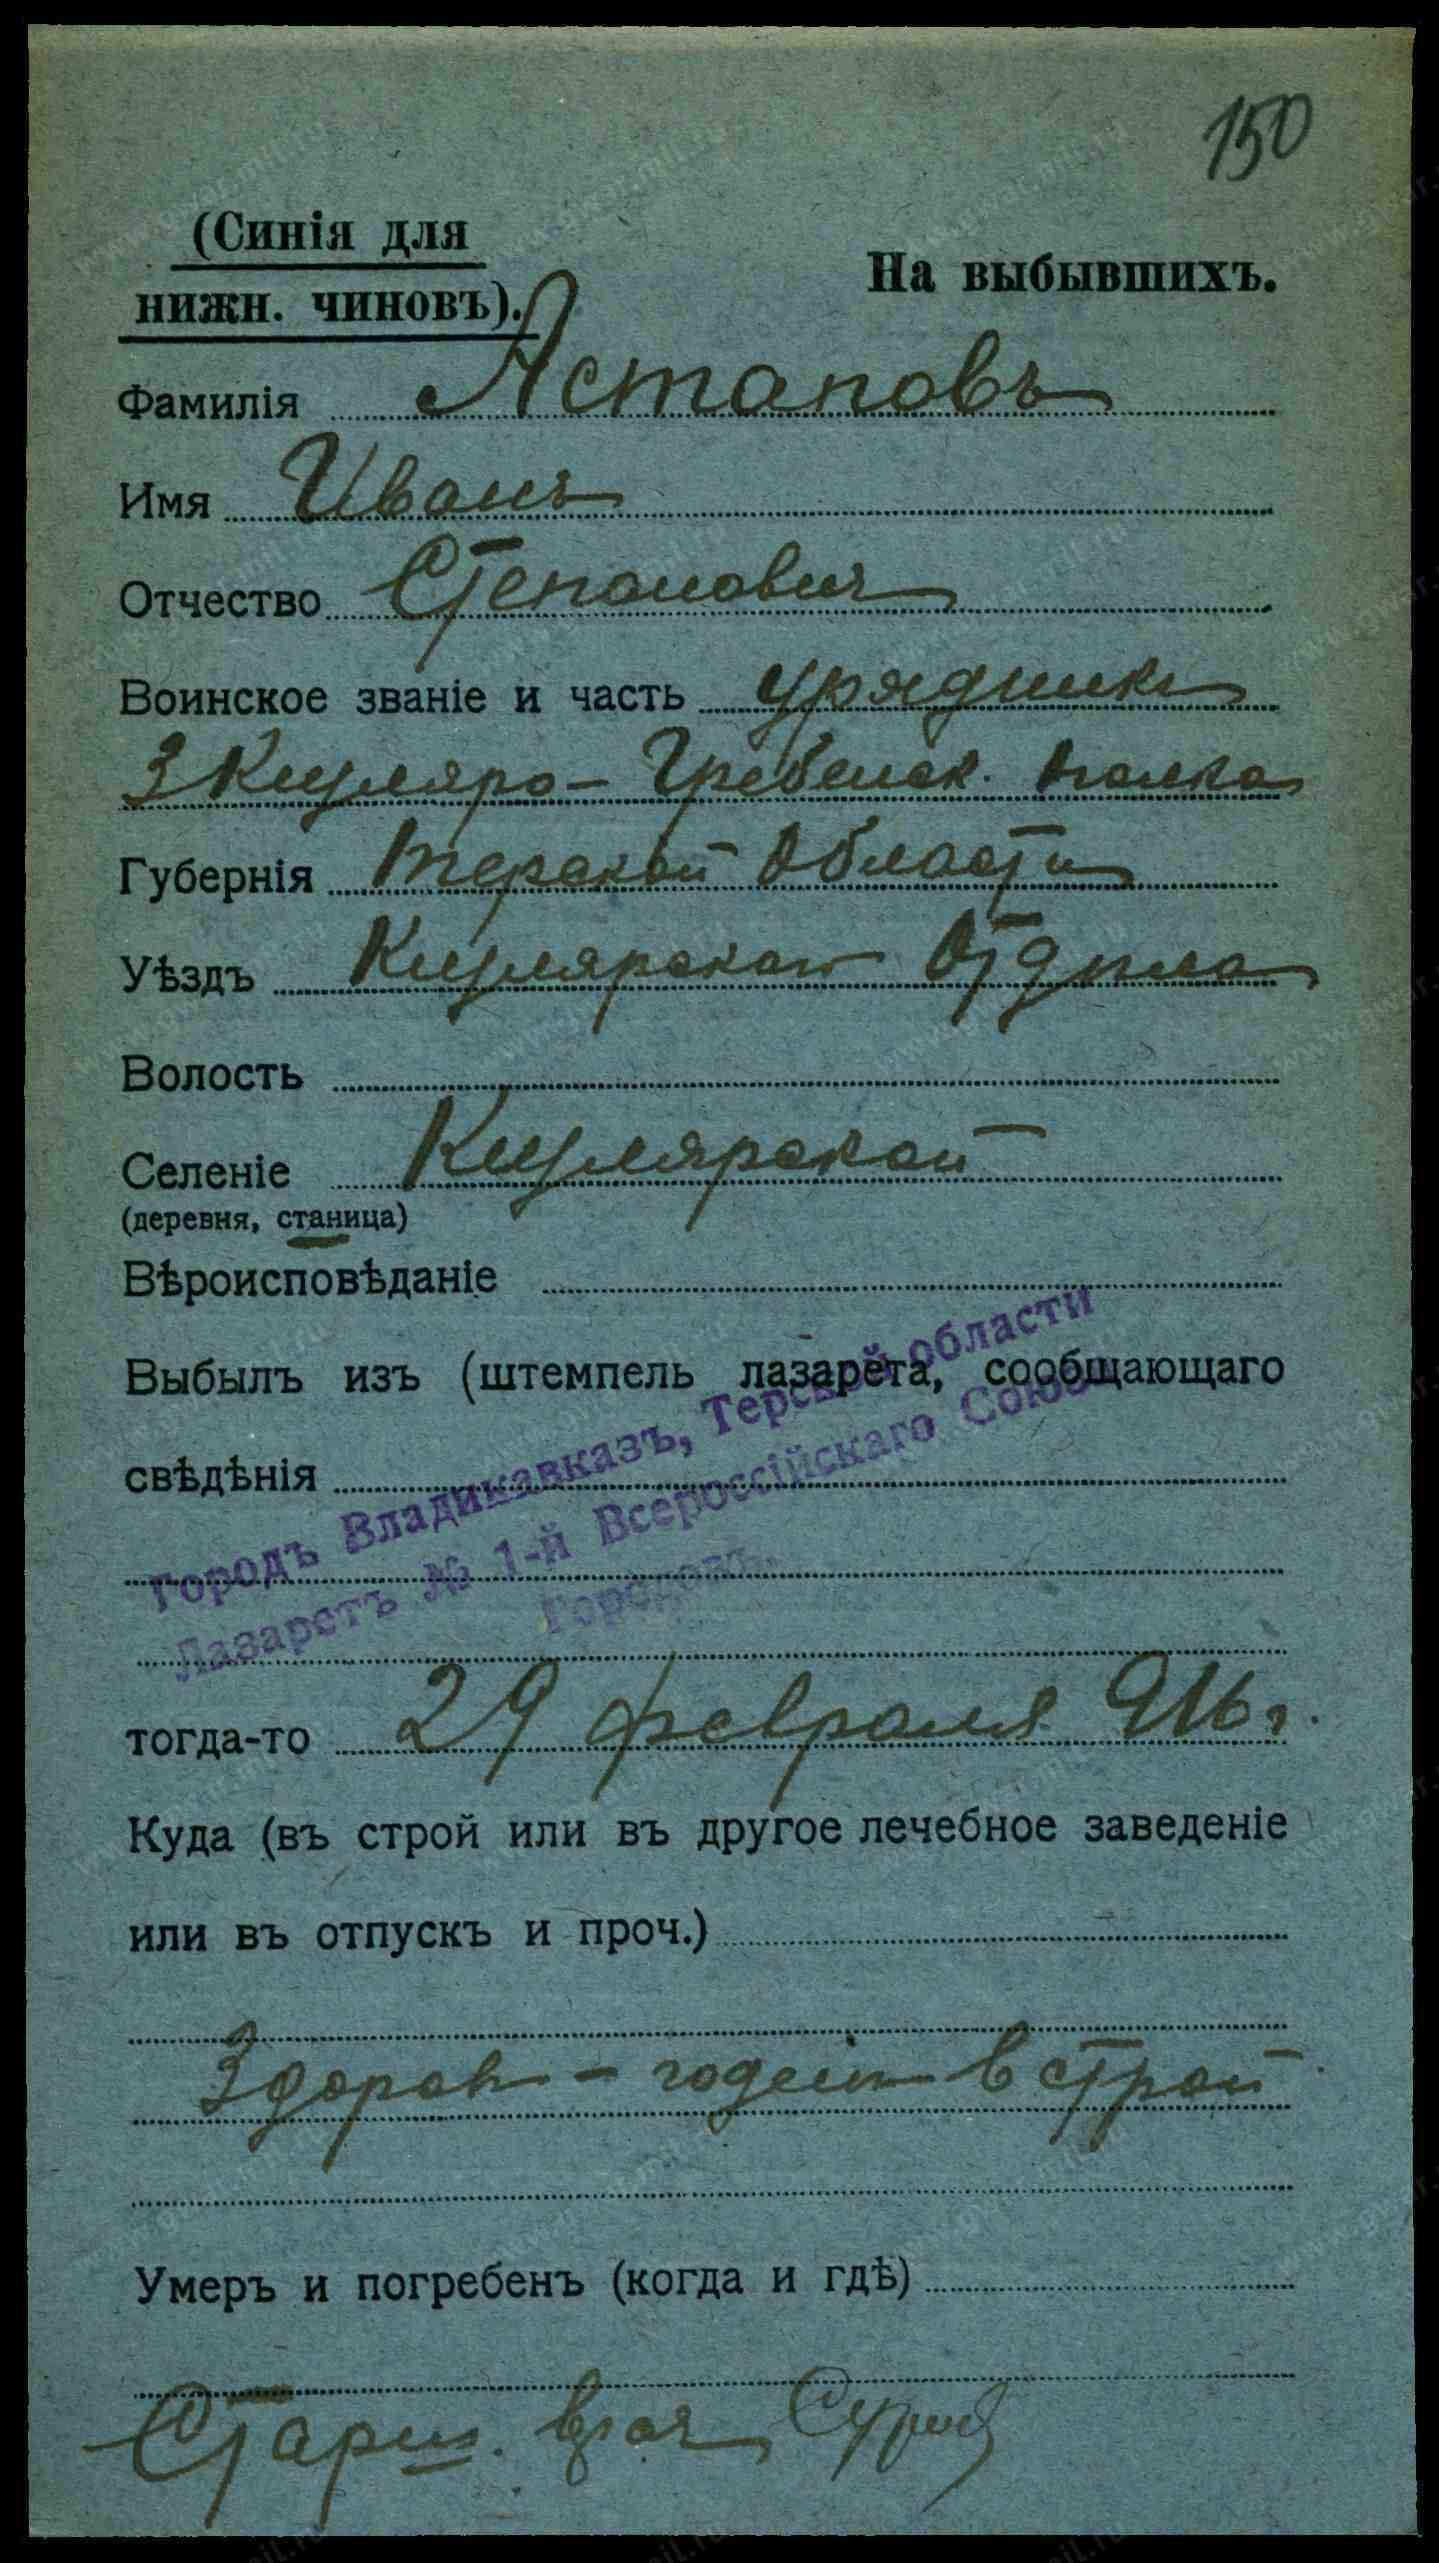 150
(Синія для
нижн. чиновъ).
На выбывшихъ.
Фамилія Астаповъ
Имя Иванъ
Отчество Степанович
Воинское званіе и часть урядник
3 Кизляро-Гребенск. полка
Губернія Терской Области
Уѣздъ Кизлярскаго Отдѣла
Волость
Селеніе Кизлярской
(деревня, станица)
Вѣроисповѣданіе
Выбылъ изъ (штемпель лазарета, сообщающаго
свѣдѣнія
Городъ Владикавказъ, Терской области
Лазаретъ № 1-й Всероссійскаго Союза
Городовъ.
тогда-то 29 февраля 916 г.
Куда (въ строй или въ другое лечебное заведеніе
или въ отпускъ и проч.)
Здоров - годен в строй
Умеръ и погребенъ (когда и гдѣ)
Старш. врач